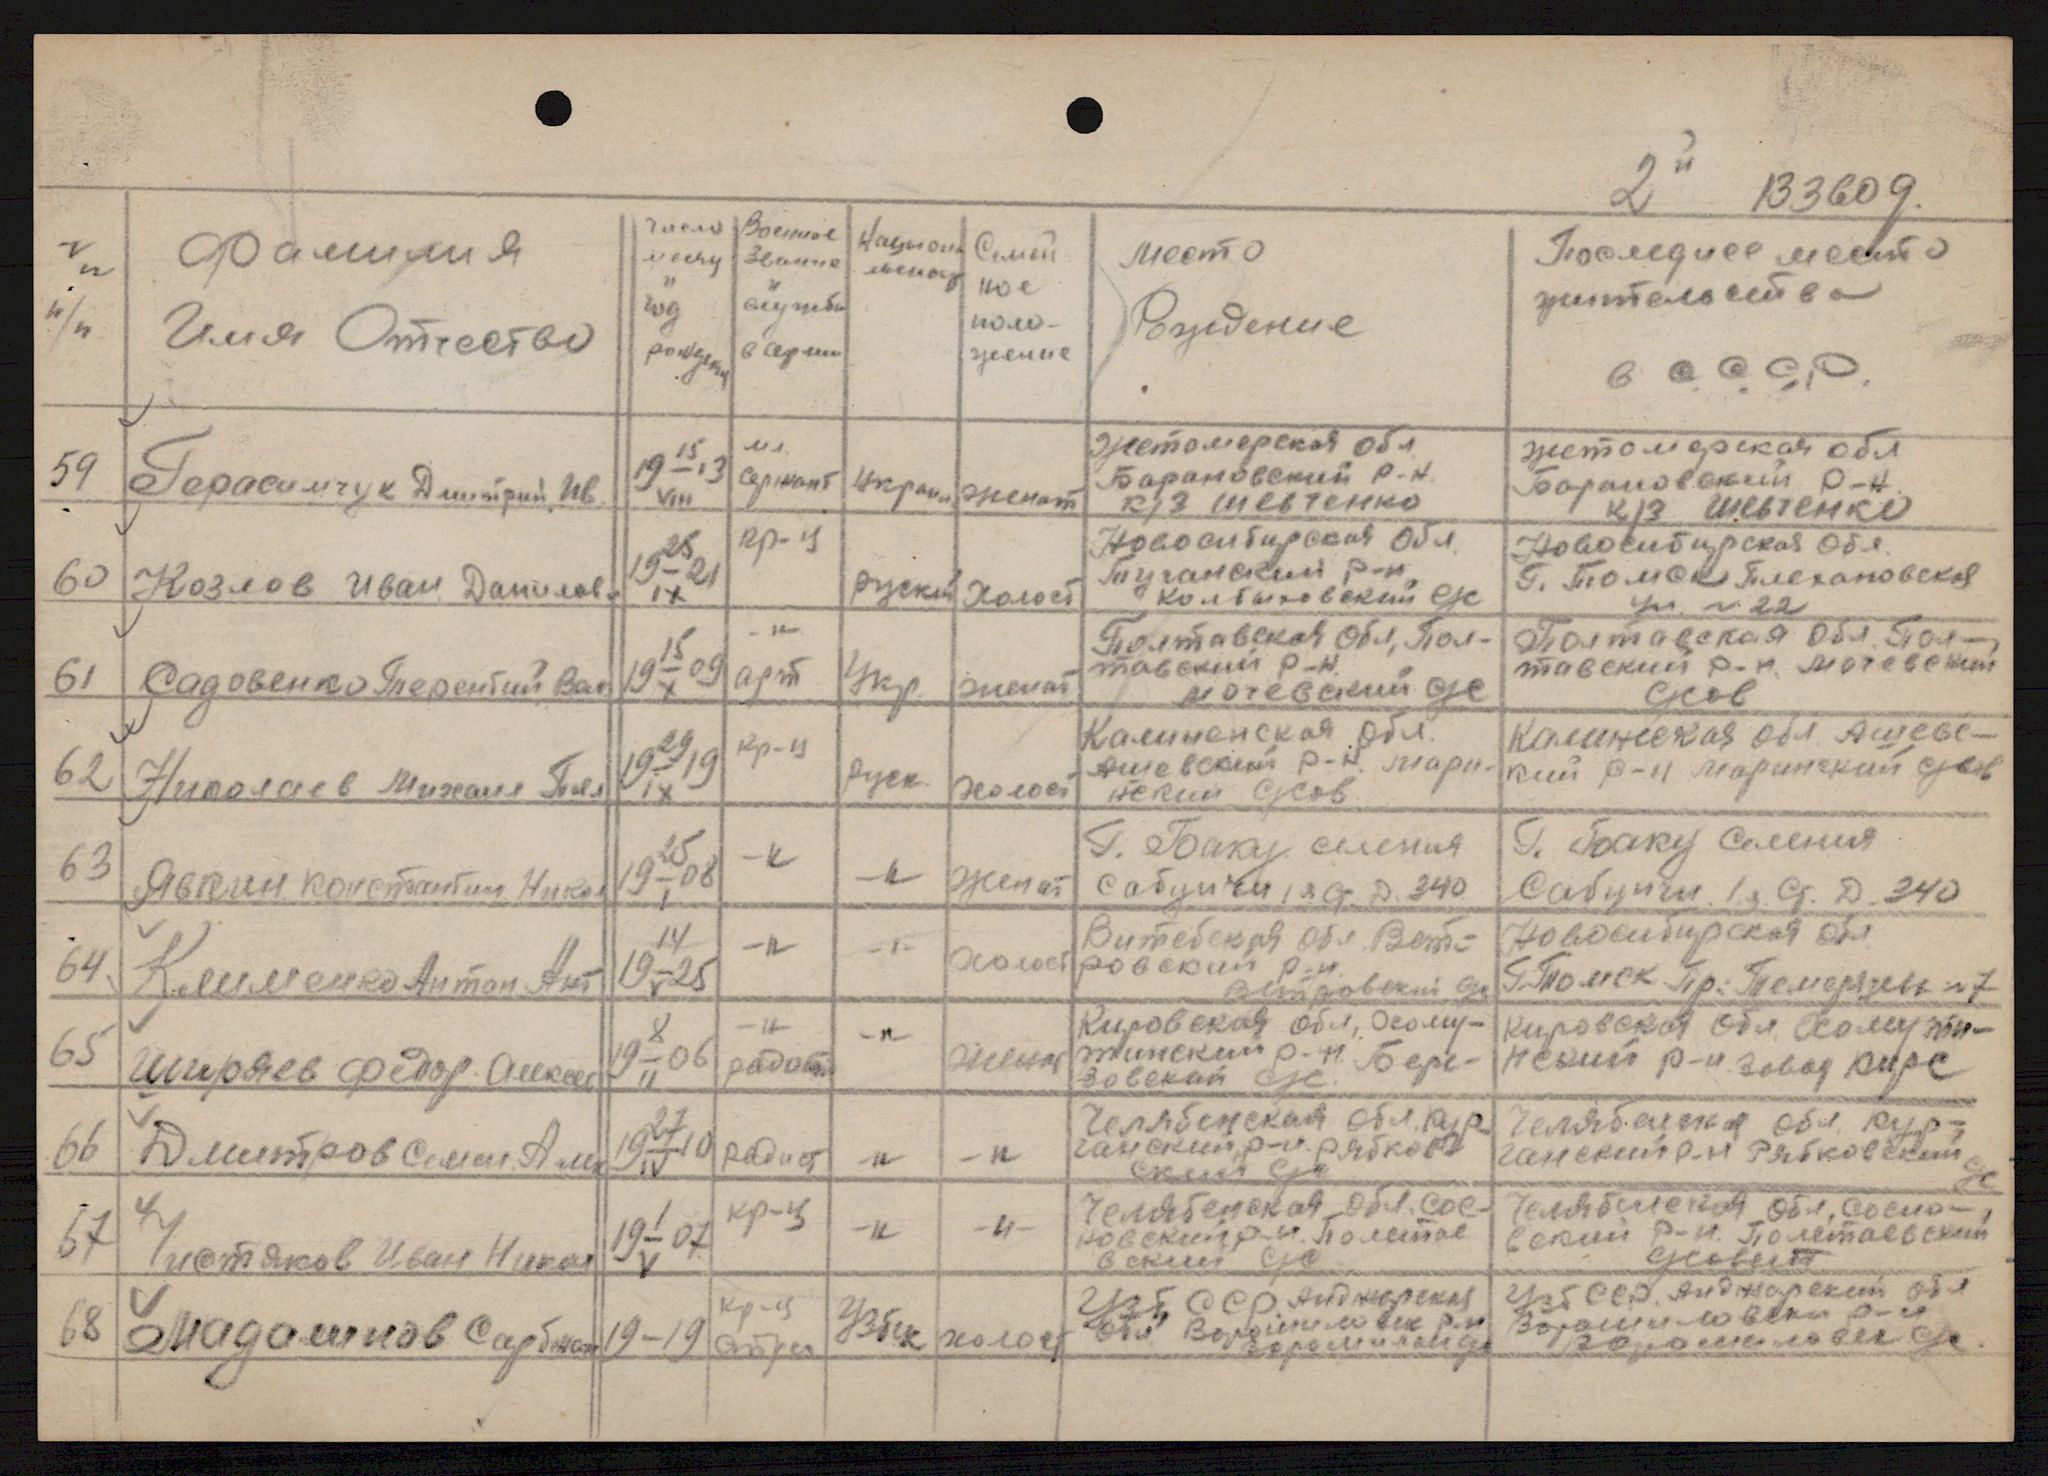 2й взвод.
№ п/п
Фамилия
Имя Отчество
Число месяц и год рождения
Военное звание и служба в армии
Национальность
Семейное положение
Место
Рождение
Последнее место
жительства
в С.С.С.Р.
59 Герасимчук Дмитрий Ив. 19 15/VIII 13 мл. сержант Украин женат
Жетомерская обл
Барановский р-н.
к/з Шевченко
жетомерская обл
Барановский р-н.
к/з Шевченко
60 Козлов Иван Данилов. 19 25/IX 21 кр-ц руский холост
Новосибирская обл.
Туганский р-н
с/с
Новосибирская обл.
г. Томск Плехановская
ул. № 22
61 Садовенко Терентий Вас 19 15/X 09 -"- арт Укр. женат
Полтавская обл, Пол-
тавский р-н.
мочевский с/с
Полтавская обл. Пол-
тавский р-н. мочевский
с/сов
62 Николаев Михаил 19 29/IX 19 кр-ц руск. холост
Калиненская обл.
Ашевский р-н. мари-
нский с/сов
Калинская обл. Ашевс-
кий р-н маринский с/сов
63 Явкин Константин Никол 19 25/I 08 -"- -"- женат
г. Баку селения
Сабунчи 1я д. 340
г. Баку селения
Сабунчи. 1я д. 340
64 Клименко Антон Ант 19 14/V 25 -"- -"- холост
Витебская обл. Вет-
ровский р-н.
Ветровский с/с
Новосибирская обл
г. Томск Пр. Темерязев № 7
65 Ширяев Фёдор Алексее 19 8/II 06 -"- радист -"- женат
Кировская обл, Хому-
тинский р-н. Бере-
зовский с/с.
Кировская обл. Хомути-
нский р-н. завод Кирс
66 Дмитров Семен 19 27/IV 10 радист -"- -"-
Челябенская обл. кур-
ганский р-н. Рябков
ский с/с
Челябенска обл. кур-
ганский р-н Рябковский
с/с
67 Чистяков Иван Никол 19 1/V 07. кр-ц -"- -"-
Челябенская обл. сос-
новский р-н. Полетае
вский с/с
Челябенская обл. сосно-
вский р-н. Полетаевский
с/совет
68 Мадаминов 19-19 кр-ц Узбек холост
Узб. ССР
обл
с/с
Узб ССР. обл
р-н
с/с.